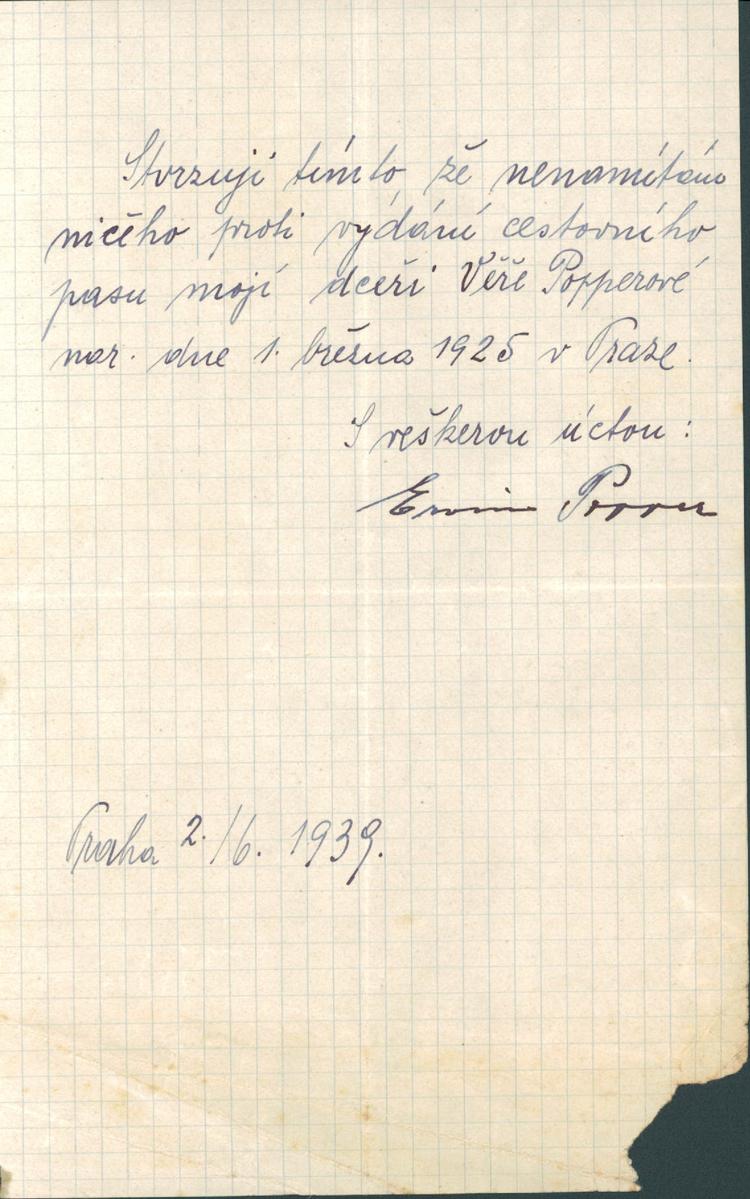 Stvrzuji tímto, že nenamítám
ničeho proti vydání cestovního
pasu mojí dceři Věře Popperové
nar. dne 1. března 1925 v Praze.
S veškerou úctou:
Ervin Popper
Praha 2./6. 1939.